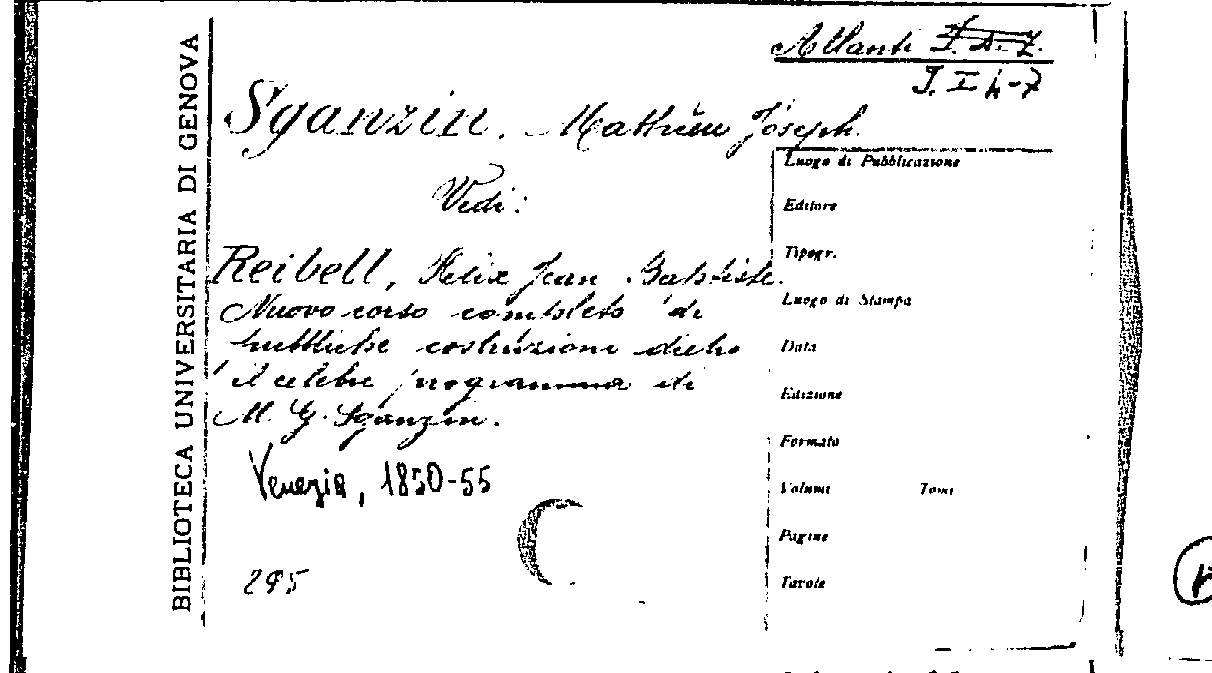 BIBLIOTECA UNIVERSITARIA DI GENOVA
Atlanti
Sganzin, Mathieu Joseph.
Vedi:
Reibell, Felix Jean Baptiste.
Nuovo corso completo di
pubbliche costruzioni dietro
il celebre programma di
M. G. Sganzin.
Venezia, 1850-55
295
Luogo di Pubblicazione
Editore
Tipogr.
Luogo di Stampa
Data
Edizione
Formato
Volumi Tomi
Pagine
Tavole